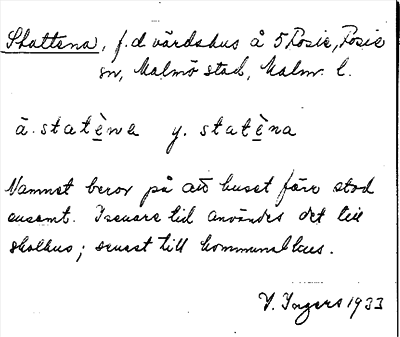 Skattena, f.d värdshus å 5 Rosie, Rosie
sn, Malmö stad, Malm. l.
ä. statène y. statèna
Namnet beror på att huset förr stod
ensamt. I senare tid användes det till
skolhus; senast till kommunalhus.
V. Ingers 1933